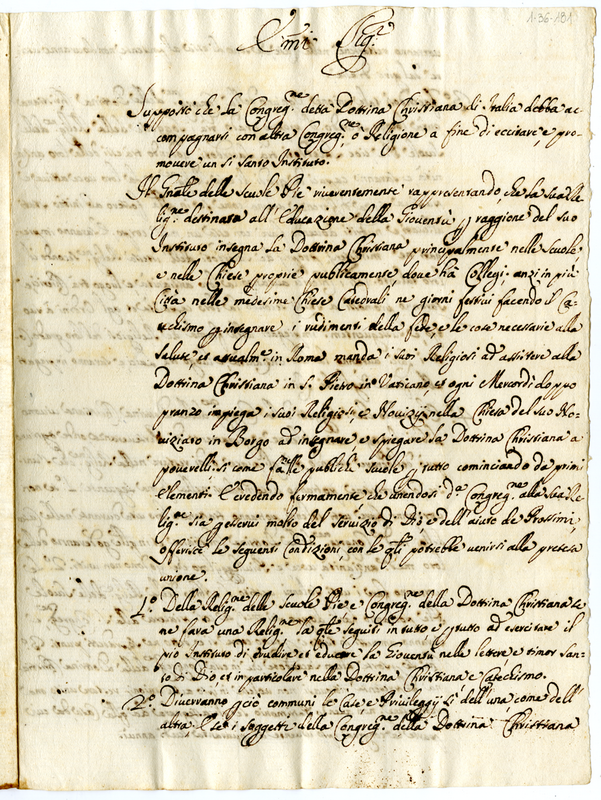 1-36-181
E.mi Sig.ri
Supposto che la Congreg.ne della Dottrina Christiana di Italia debba ac-
compagnarsi con altra Congreg.ne, ò Religione a fine di eccitare, e pro-
movere un sì santo Instituto.
Il Gn̄ale delle Scuole Pie riverentemente rappresentando, che la sua Re-
lig.ne destinata all'Educazione della Gioventù, p raggione del suo
Instituto insegna la Dottrina Christiana principalmente nelle Scuole,
e nelle Chiese proprie publicamente, dove hà Collegi; anzi in più
Città nelle medesime Chiese Catedrali ne giorni festivi facendo il Ca-
techismo p insegnare i rudimenti della fede, e le cose necessarie alla
salute, et attualm.te in Roma manda i suoi Religiosi ad assistere alla
Dottrina Christiana in S. Pietro in Vaticano, et ogni Mercordì doppo
pranzo impiega i suoi Religiosi, e Novizij nella Chiesa del suo No-
viziato in Borgo ad insegnare e spiegare la Dottrina Christiana a
poverelli, si come fà nelle publiche scuole p tutto cominciando da primi
elementi. E credendo fermamente che unendosi d.a Congreg.ne alla sua Re-
lig.ne sia p esservi molto del servizio di Dio e dell'aiuto de Prossimi,
offerisce le seguenti Condizioni, con le q̄li potrebbe venirsi alla pretesa
unione.
1.o Della Relig.ne delle Scuole Pie e Congreg.ne della Dottrina Christiana se
ne farà una Relig.ne la q̄le seguiti in tutto e p tutto ad esercitare il
pio Instituto di erudire et educare la Gioventù nelle lettere, e timor san-
to di Dio, et in particolare nella Dottrina Christiana e Catechismo.
2.o Diverranno p ciò communi le Case e Privileggij sì dell'una come dell'
altra, e se i soggetti della Congreg.ne della Dottrina Christiana